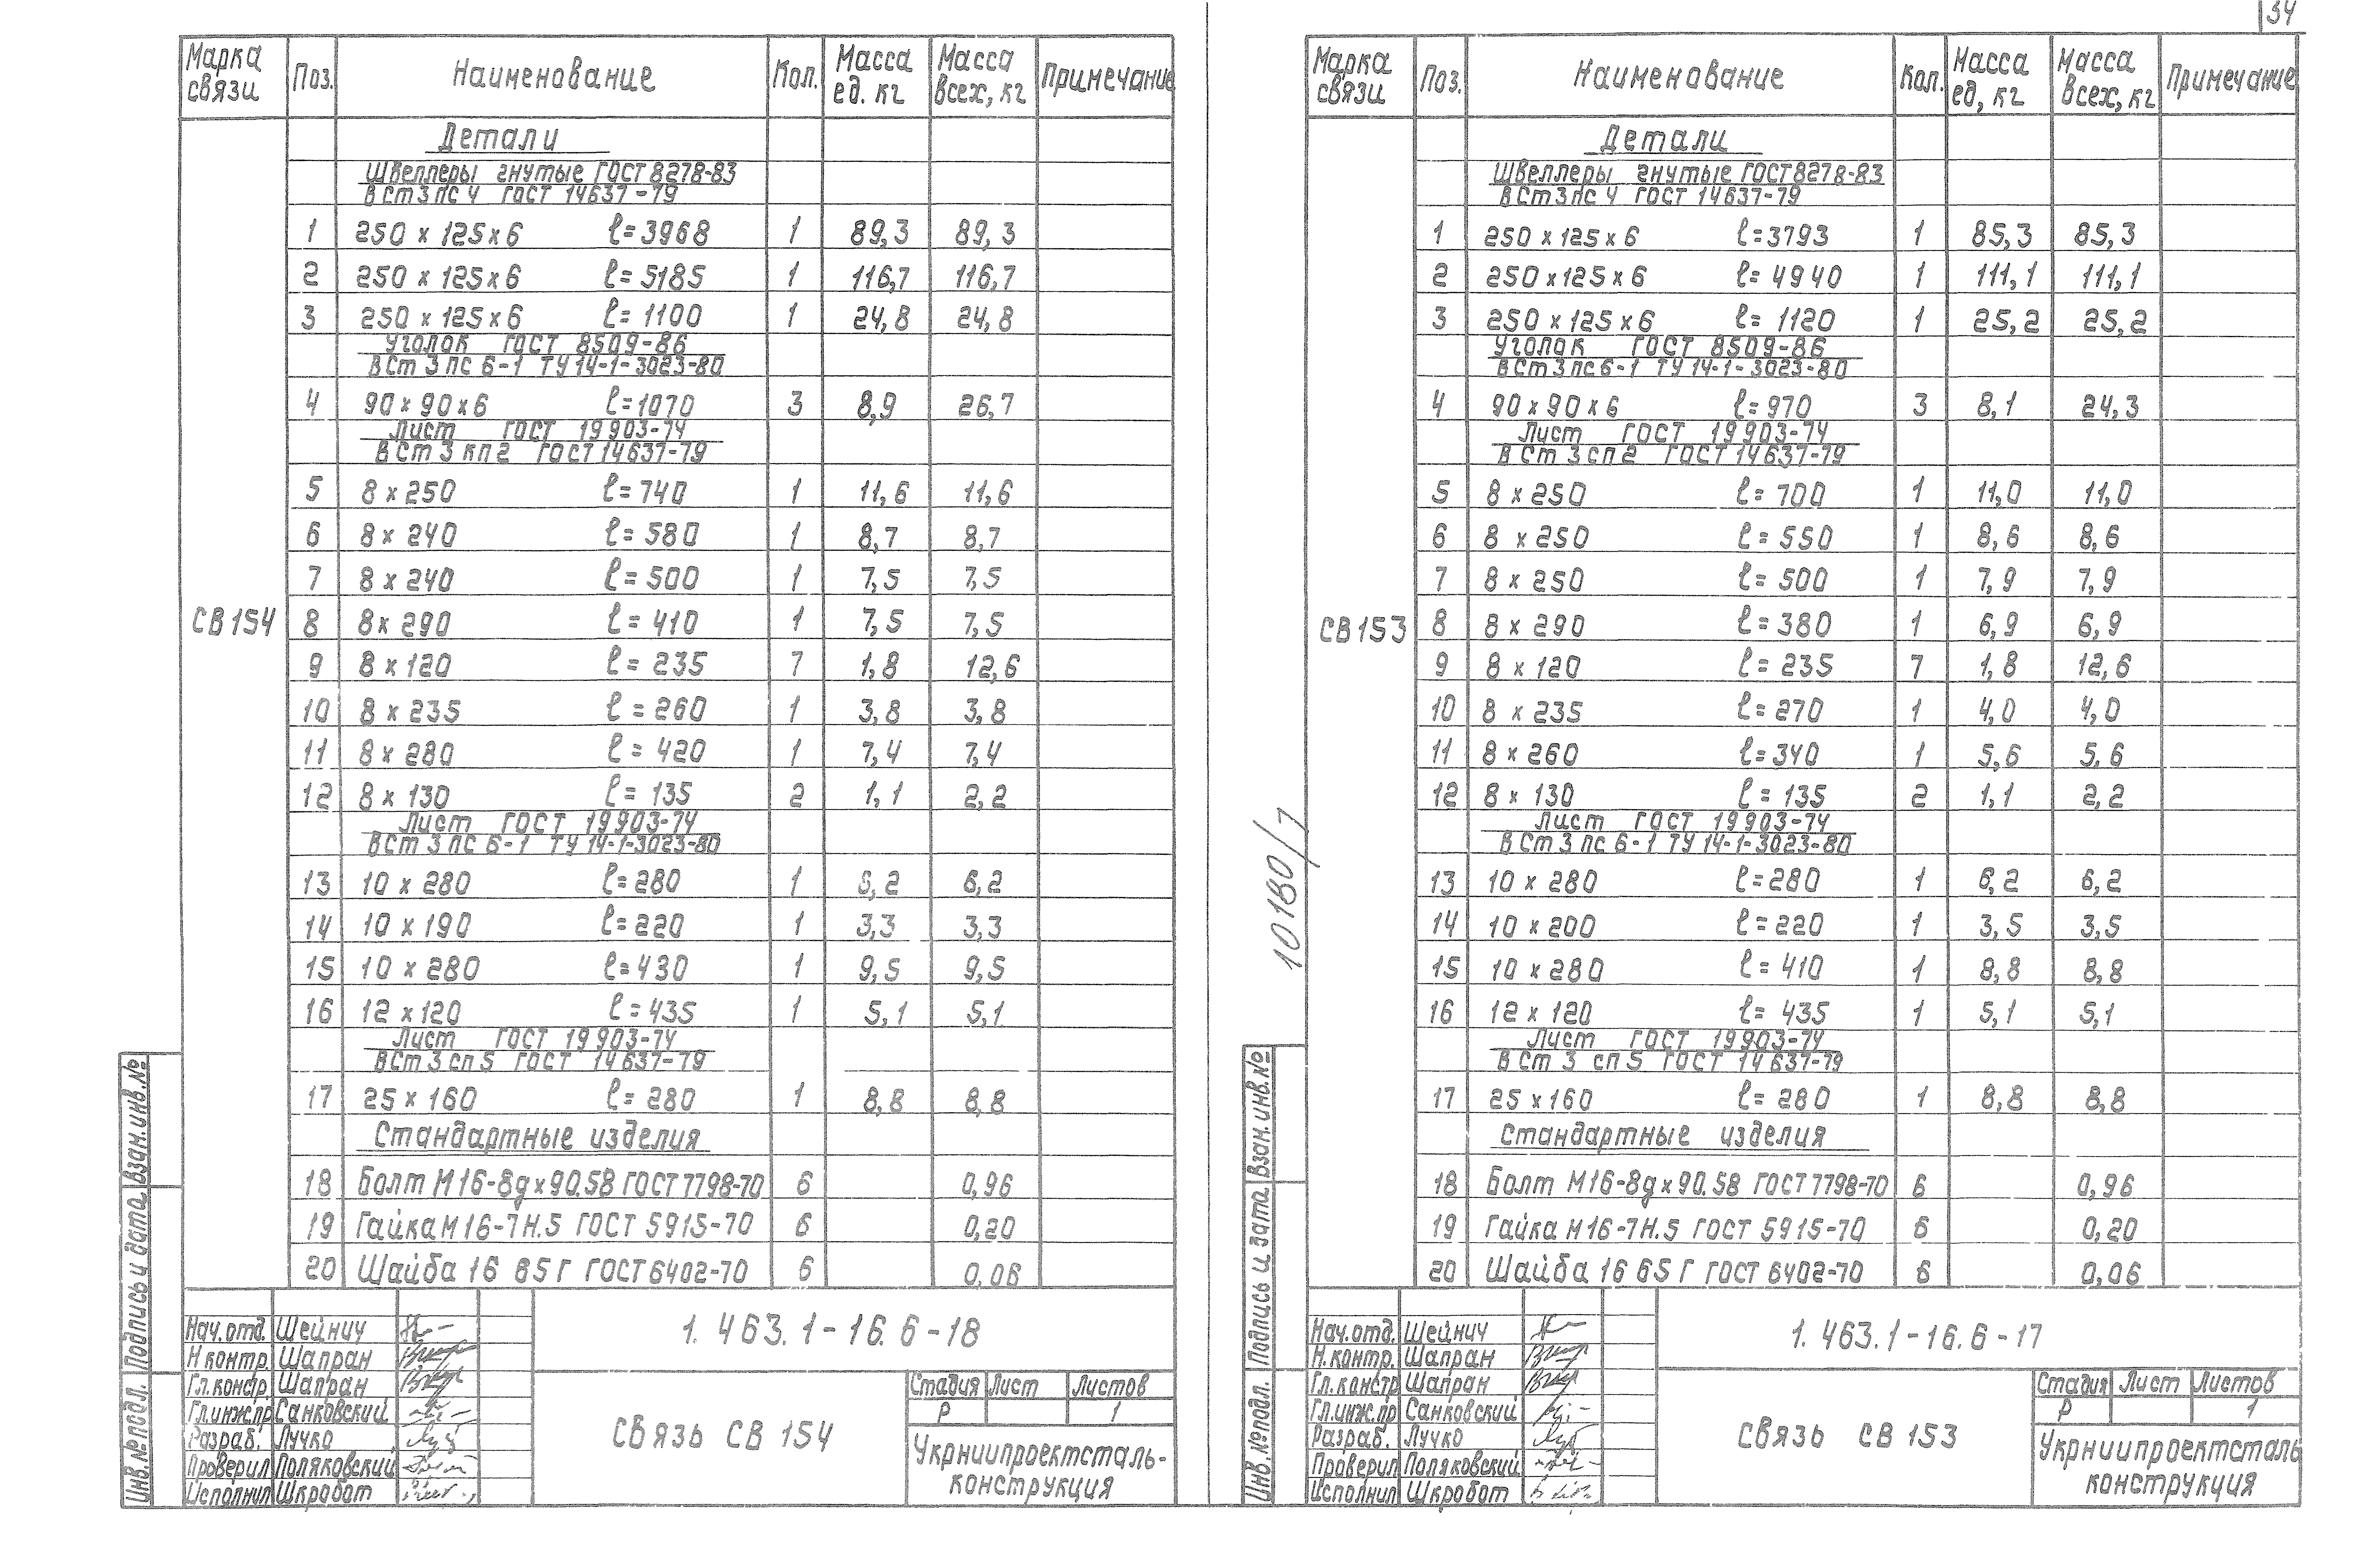 34
Марка связи Поз. Наименование Кол. Масса ед. кг Масса всех, кг Примечание
Детали
Швеллеры гнутые ГОСТ 8278-83
ВСт3пс4 ГОСТ 14637-79
1 250 х 125 х 6 ℓ=3968 1 89,3 89,3
2 250 х 125 х 6 ℓ=5185 1 116,7 116,7
3 250 х 125 х 6 ℓ=1100 1 24,8 24,8
Уголок ГОСТ 8509-86
ВСт3пс6-1 ТУ14-1-3023-80
4 90 х 90 х 6 ℓ=1070 3 8,9 26,7
Лист ГОСТ 19903-74
ВСт3кп2 ГОСТ 14637-79
5 8 х 250 ℓ=740 1 11,6 11,6
6 8 х 240 ℓ=580 1 8,7 8,7
7 8 х 240 ℓ=500 1 7,5 7,5
СВ154 8 8 х 290 ℓ=410 1 7,5 7,5
9 8 х 120 ℓ=235 7 1,8 12,6
10 8 х 235 ℓ=260 1 3,8 3,8
11 8 х 280 ℓ=420 1 7,4 7,4
12 8 х 130 ℓ=135 2 1,1 2,2
Лист ГОСТ 19903-74
ВСт3пс6-1 ТУ14-1-3023-80
13 10 х 280 ℓ=280 1 6,2 6,2
14 10 х 190 ℓ=220 1 3,3 3,3
15 10 х 280 ℓ=430 1 9,5 9,5
16 12 х 120 ℓ=435 1 5,1 5,1
Лист ГОСТ 19903-74
ВСт3сп5 ГОСТ 14637-79
17 25 х 160 ℓ=280 1 8,8 8,8
Стандартные изделия
18 Болт М16-8gх90.58 ГОСТ 7798-70 6 0,96
19 Гайка М16-7Н.5 ГОСТ 5915-70 6 0,20
20 Шайба 16 65Г ГОСТ 6402-70 6 0,06
Инв.№подл. Подпись и дата Взам.инв.№
Нач.отд. Шейнич
Н контр. Шапран
Гл.констр. Шапран
Гл.инж.пр Санковский
Разраб. Лучко
Проверил Поляковский
Исполнил Шкробот
1.463.1-16.6-18
Связь СВ 154
Стадия Лист Листов
Р 1
Укрниипроектсталь-
конструкция
10180/7
Марка связи Поз. Наименование Кол. Масса ед, кг Масса всех, кг Примечание
Детали
Швеллеры гнутые ГОСТ 8278-83
ВСт3пс4 ГОСТ 14637-79
1 250 х 125 х 6 ℓ=3793 1 85,3 85,3
2 250 х 125 х 6 ℓ=4940 1 111,1 111,1
3 250 х 125 х 6 ℓ=1120 1 25,2 25,2
Уголок ГОСТ 8509-86
ВСт3пс6-1 ТУ14-1-3023-80
4 90 х 90 х 6 ℓ=970 3 8,1 24,3
Лист ГОСТ 19903-74
ВСт3сп2 ГОСТ 14637-79
5 8 х 250 ℓ=700 1 11,0 11,0
6 8 х 250 ℓ=550 1 8,6 8,6
7 8 х 250 ℓ=500 1 7,9 7,9
СВ153 8 8 х 290 ℓ=380 1 6,9 6,9
9 8 х 120 ℓ=235 7 1,8 12,6
10 8 х 235 ℓ=270 1 4,0 4,0
11 8 х 260 ℓ=340 1 5,6 5,6
12 8 х 130 ℓ=135 2 1,1 2,2
Лист ГОСТ 19903-74
ВСт3пс6-1 ТУ14-1-3023-80
13 10 х 280 ℓ=280 1 6,2 6,2
14 10 х 200 ℓ=220 1 3,5 3,5
15 10 х 280 ℓ=410 1 8,8 8,8
16 12 х 120 ℓ=435 1 5,1 5,1
Лист ГОСТ 19903-74
ВСт3 сп5 ГОСТ 14637-79
17 25 х 160 ℓ=280 1 8,8 8,8
Стандартные изделия
18 Болт М16-8gх90.58 ГОСТ 7798-70 6 0,96
19 Гайка М16-7Н.5 ГОСТ 5915-70 6 0,20
20 Шайба 16 65Г ГОСТ 6402-70 6 0,06
Инв.№подл. Подпись и дата Взам.инв.№
Нач.отд. Шейнич
Н.контр. Шапран
Гл.констр Шапран
Гл.инж.пр Санковский
Разраб. Лучко
Проверил Поляковский
Исполнил Шкробот
1.463.1-16.6-17
Связь СВ 153
Стадия Лист Листов
Р 1
Укрниипроектсталь
конструкция